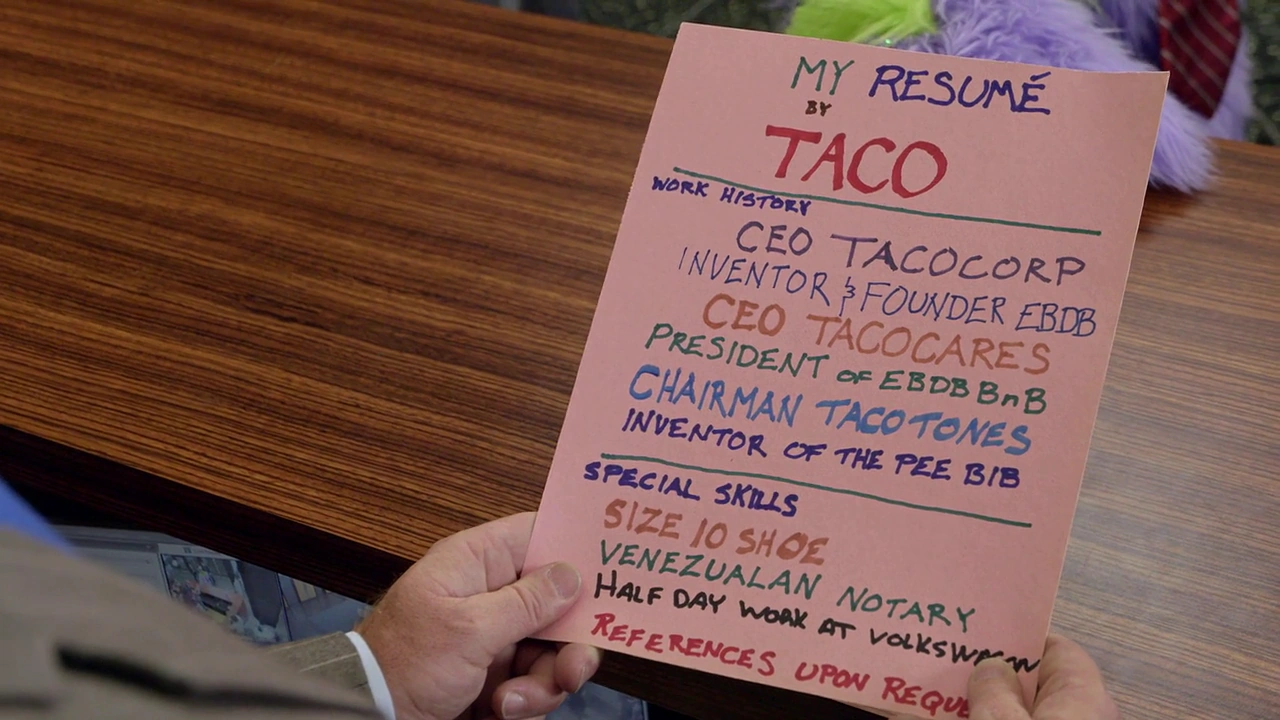 MY RESUMÉ
BY
TACO
WORK HISTORY
CEO TACOCORP
INVENTOR & FOUNDER EBDB
CEO TACOCARES
PRESIDENT OF EBDB BnB
CHAIRMAN TACOTONES
INVENTOR OF THE PEE BIB
SPECIAL SKILLS
SIZE 10 SHOE
VENEZUALAN NOTARY
HALF DAY WORK AT VOLKSWAGAN
REFERENCES UPON REQUE